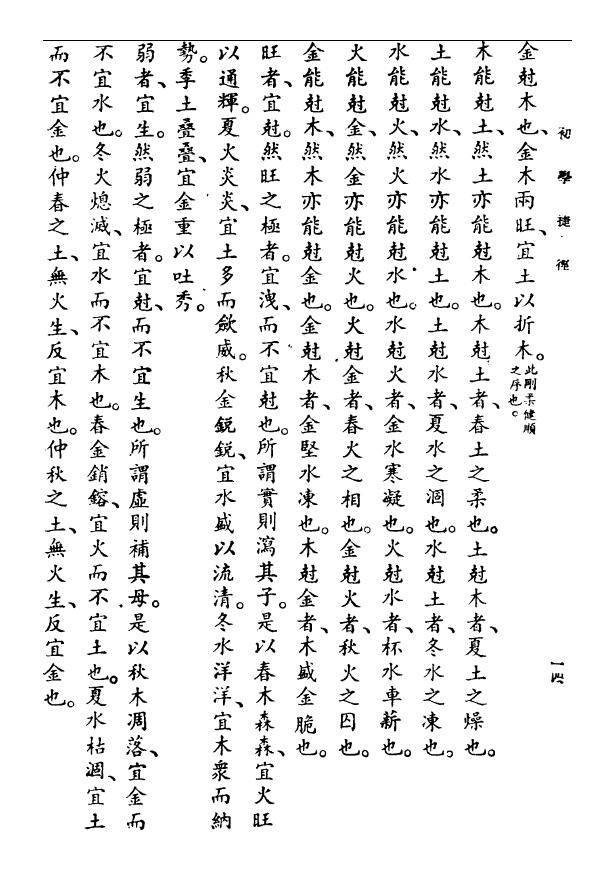 初學捷徑
一四
金尅木也、金木兩旺、宜土以折木。此剛柔健順
之序也。
木能尅土、然土亦能尅木也。木尅土者、春土之柔也。土尅木者、夏土之燥也。
土能尅水、然水亦能尅土也。土尅水者、夏水之涸也。水尅土者、冬水之凍也。
水能尅火、然火亦能尅水也。水尅火者、金水寒凝也。火尅水者、杯水車薪也。
火能尅金、然金亦能尅火也。火尅金者、春火之相也。金尅火者、秋火之囚也。
金能尅木、然木亦能尅金也。金尅木者、金堅水凍也。木尅金者、木盛金脆也。
旺者、宜尅。然旺之極者。宜洩、而不宜尅也。所謂實則瀉其子。是以春木森森、宜火旺
以通輝。夏火炎炎、宜土多而斂威。秋金銳銳、宜水盛以流清。冬水洋洋、宜木衆而納
勢。季土叠叠、宜金重以吐秀。
弱者、宜生。然弱之極者。宜尅、而不宜生也。所謂虛則補其母。是以秋木凋落、宜金而
不宜水也。冬火熄滅、宜水而不宜木也。春金銷鎔、宜火而不宜土也。夏水枯涸、宜土
而不宜金也。仲春之土、無火生、反宜木也。仲秋之土、無火生、反宜金也。